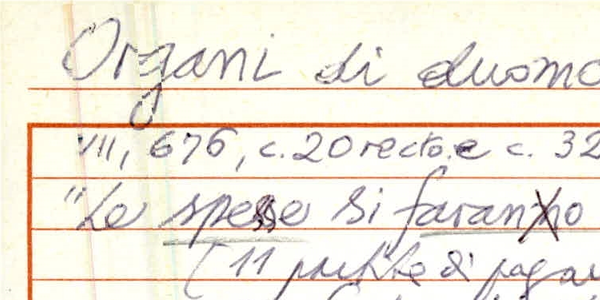 Organi di duomo
VII, 676, c. 20 recto e c. 32
"Le spese si faranno
(11 partite di pagam